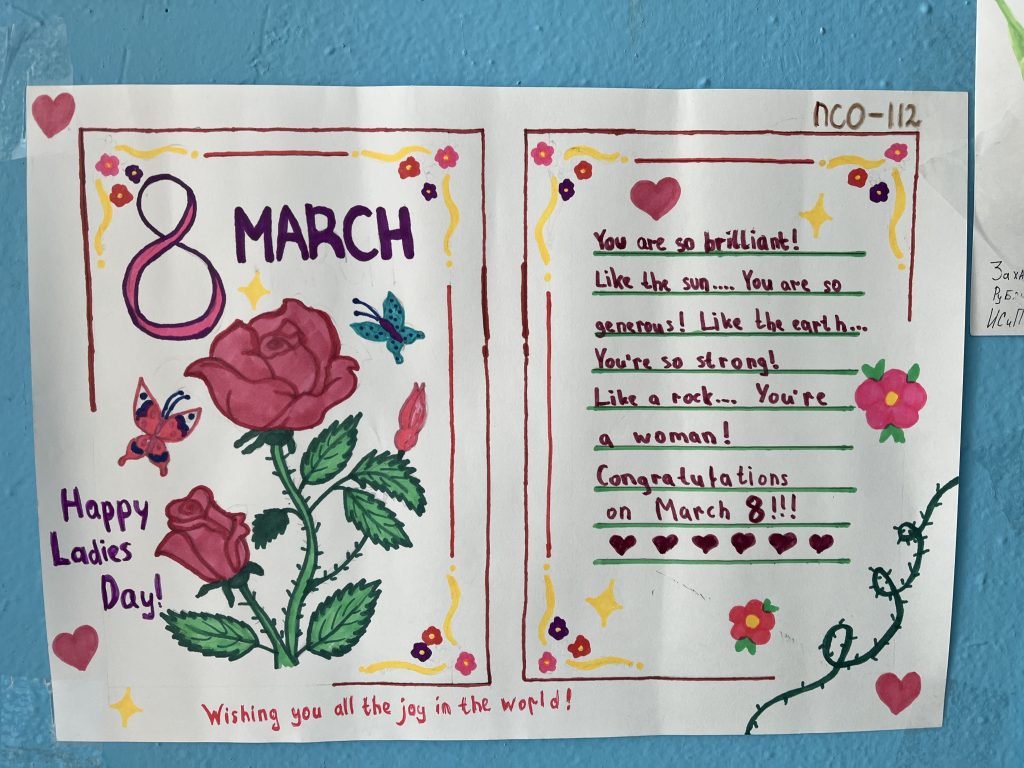 ПСО-112
8 MARCH
Happy
Ladies
Day!
Wishing you all the joy in the world!
You are so brilliant!
Like the sun.... You are so
generous! Like the earth...
You're so strong!
Like a rock.... You're
a woman!
Congratutations
on March 8!!!